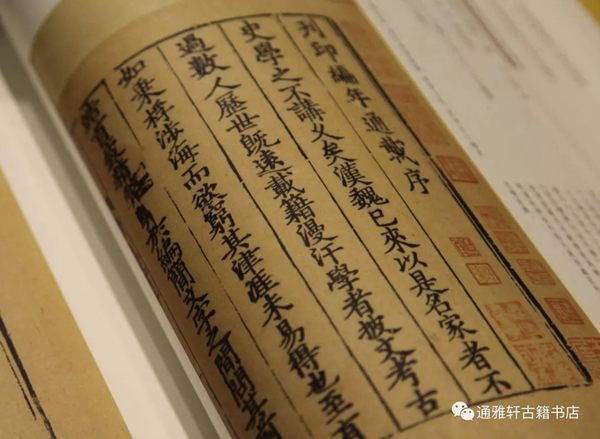 刊印編年通載序
史學之不講久矣漢魏已來以是名家者不
過數人歷世既遠載籍漫汗學者披文考古
如乗桴涉海而欲窮其津涯未易得也至有
於編簡文字之間
通雅轩古籍书店